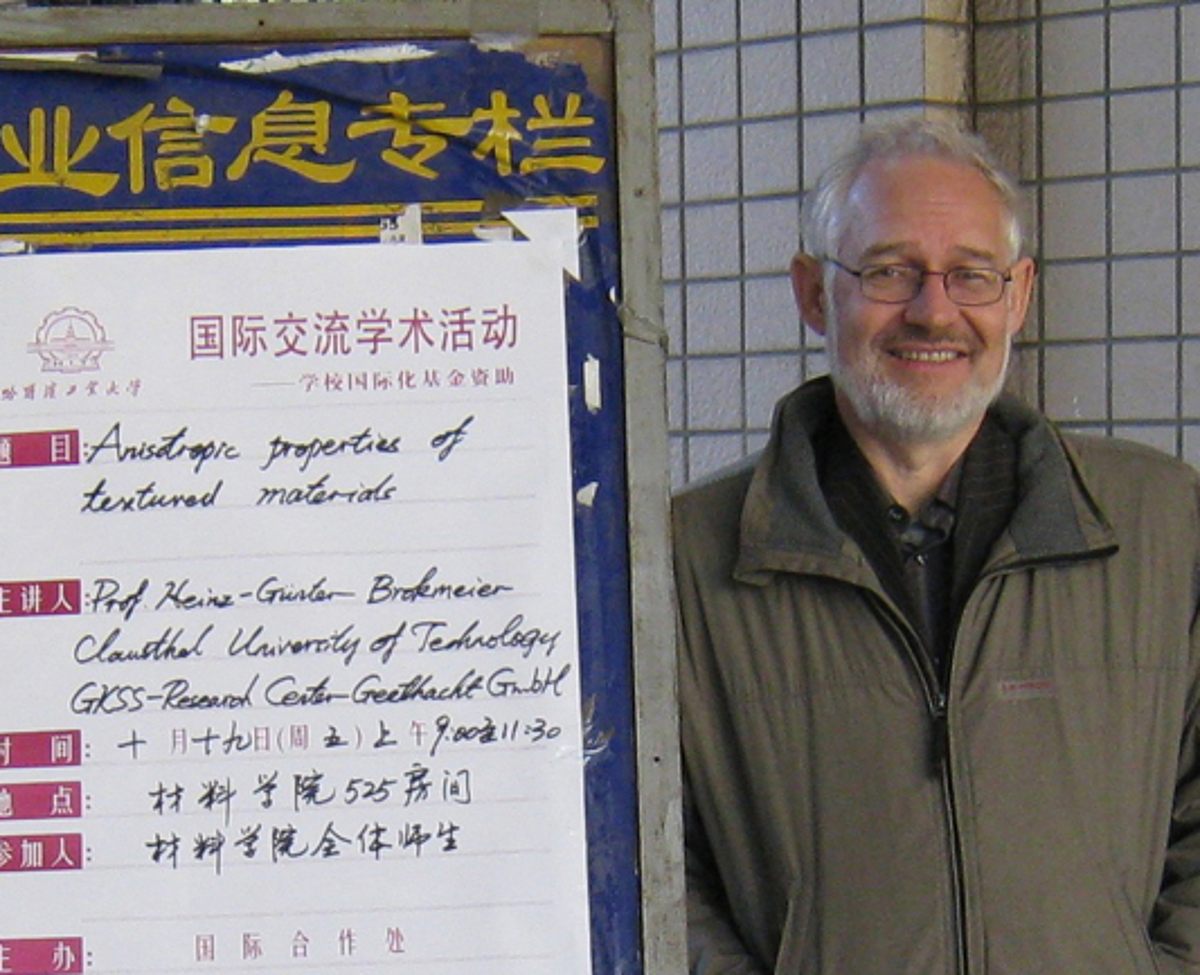 业信息专栏
国际交流学术活动
哈爾濱工業大學
——学校国际化基金资助
题 目:Anisotropic properties of
textured materials
主讲人:Prof. Heinz-Günter Brokmeier
Clausthal University of Technology
GKSS-Research Center Geethacht GmbH
时 间:十月十九日(周五)上午9:00至11:30
地 点:材料学院525房间
参加人:材料学院全体师生
主 办:国际合作处